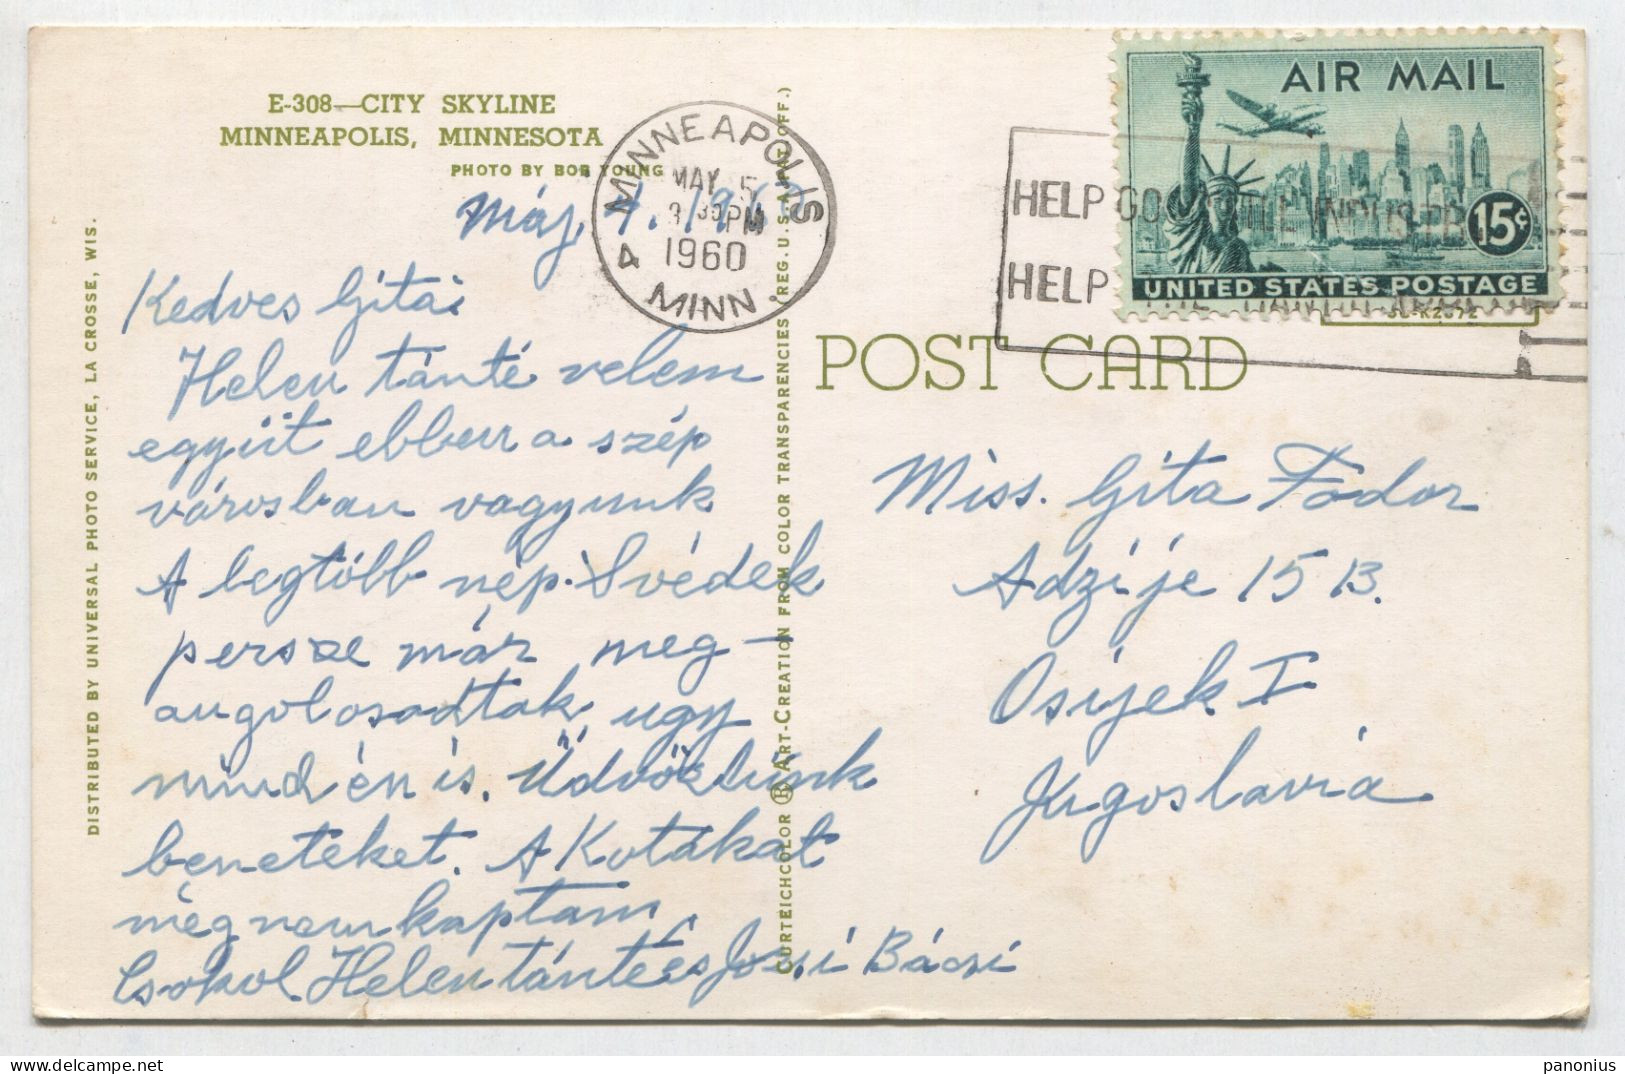 E-308—CITY SKYLINE
MINNEAPOLIS, MINNESOTA
PHOTO BY BOB YOUNG
Máj. 4. 1960
Kedves Gitai
Helen tánté velem
együtt ebben a szép
városban vagyunk
A legtöbb nép. Svédek
persze már meg-
angolosodtak, ugy
mind én is. Üdvözlünk
beneteket. A Kotákat
még nem kaptam,
Csokol Helen tánté és Joszi Bácsi
DISTRIBUTED BY UNIVERSAL PHOTO SERVICE, LA CROSSE, WIS.
CURTEICHCOLOR ® ART-CREATION FROM COLOR TRANSPARENCIES (REG. U.S.A. PAT. OFF.)
MINNEAPOLIS
MAY 5
30 PM
1960
4 MINN.
HELP
HELP
AIR MAIL
15¢
UNITED STATES POSTAGE
POST CARD
Miss. Gita Fodor
Adzije 15 B.
Osijek I
Jugoslavia
panonius